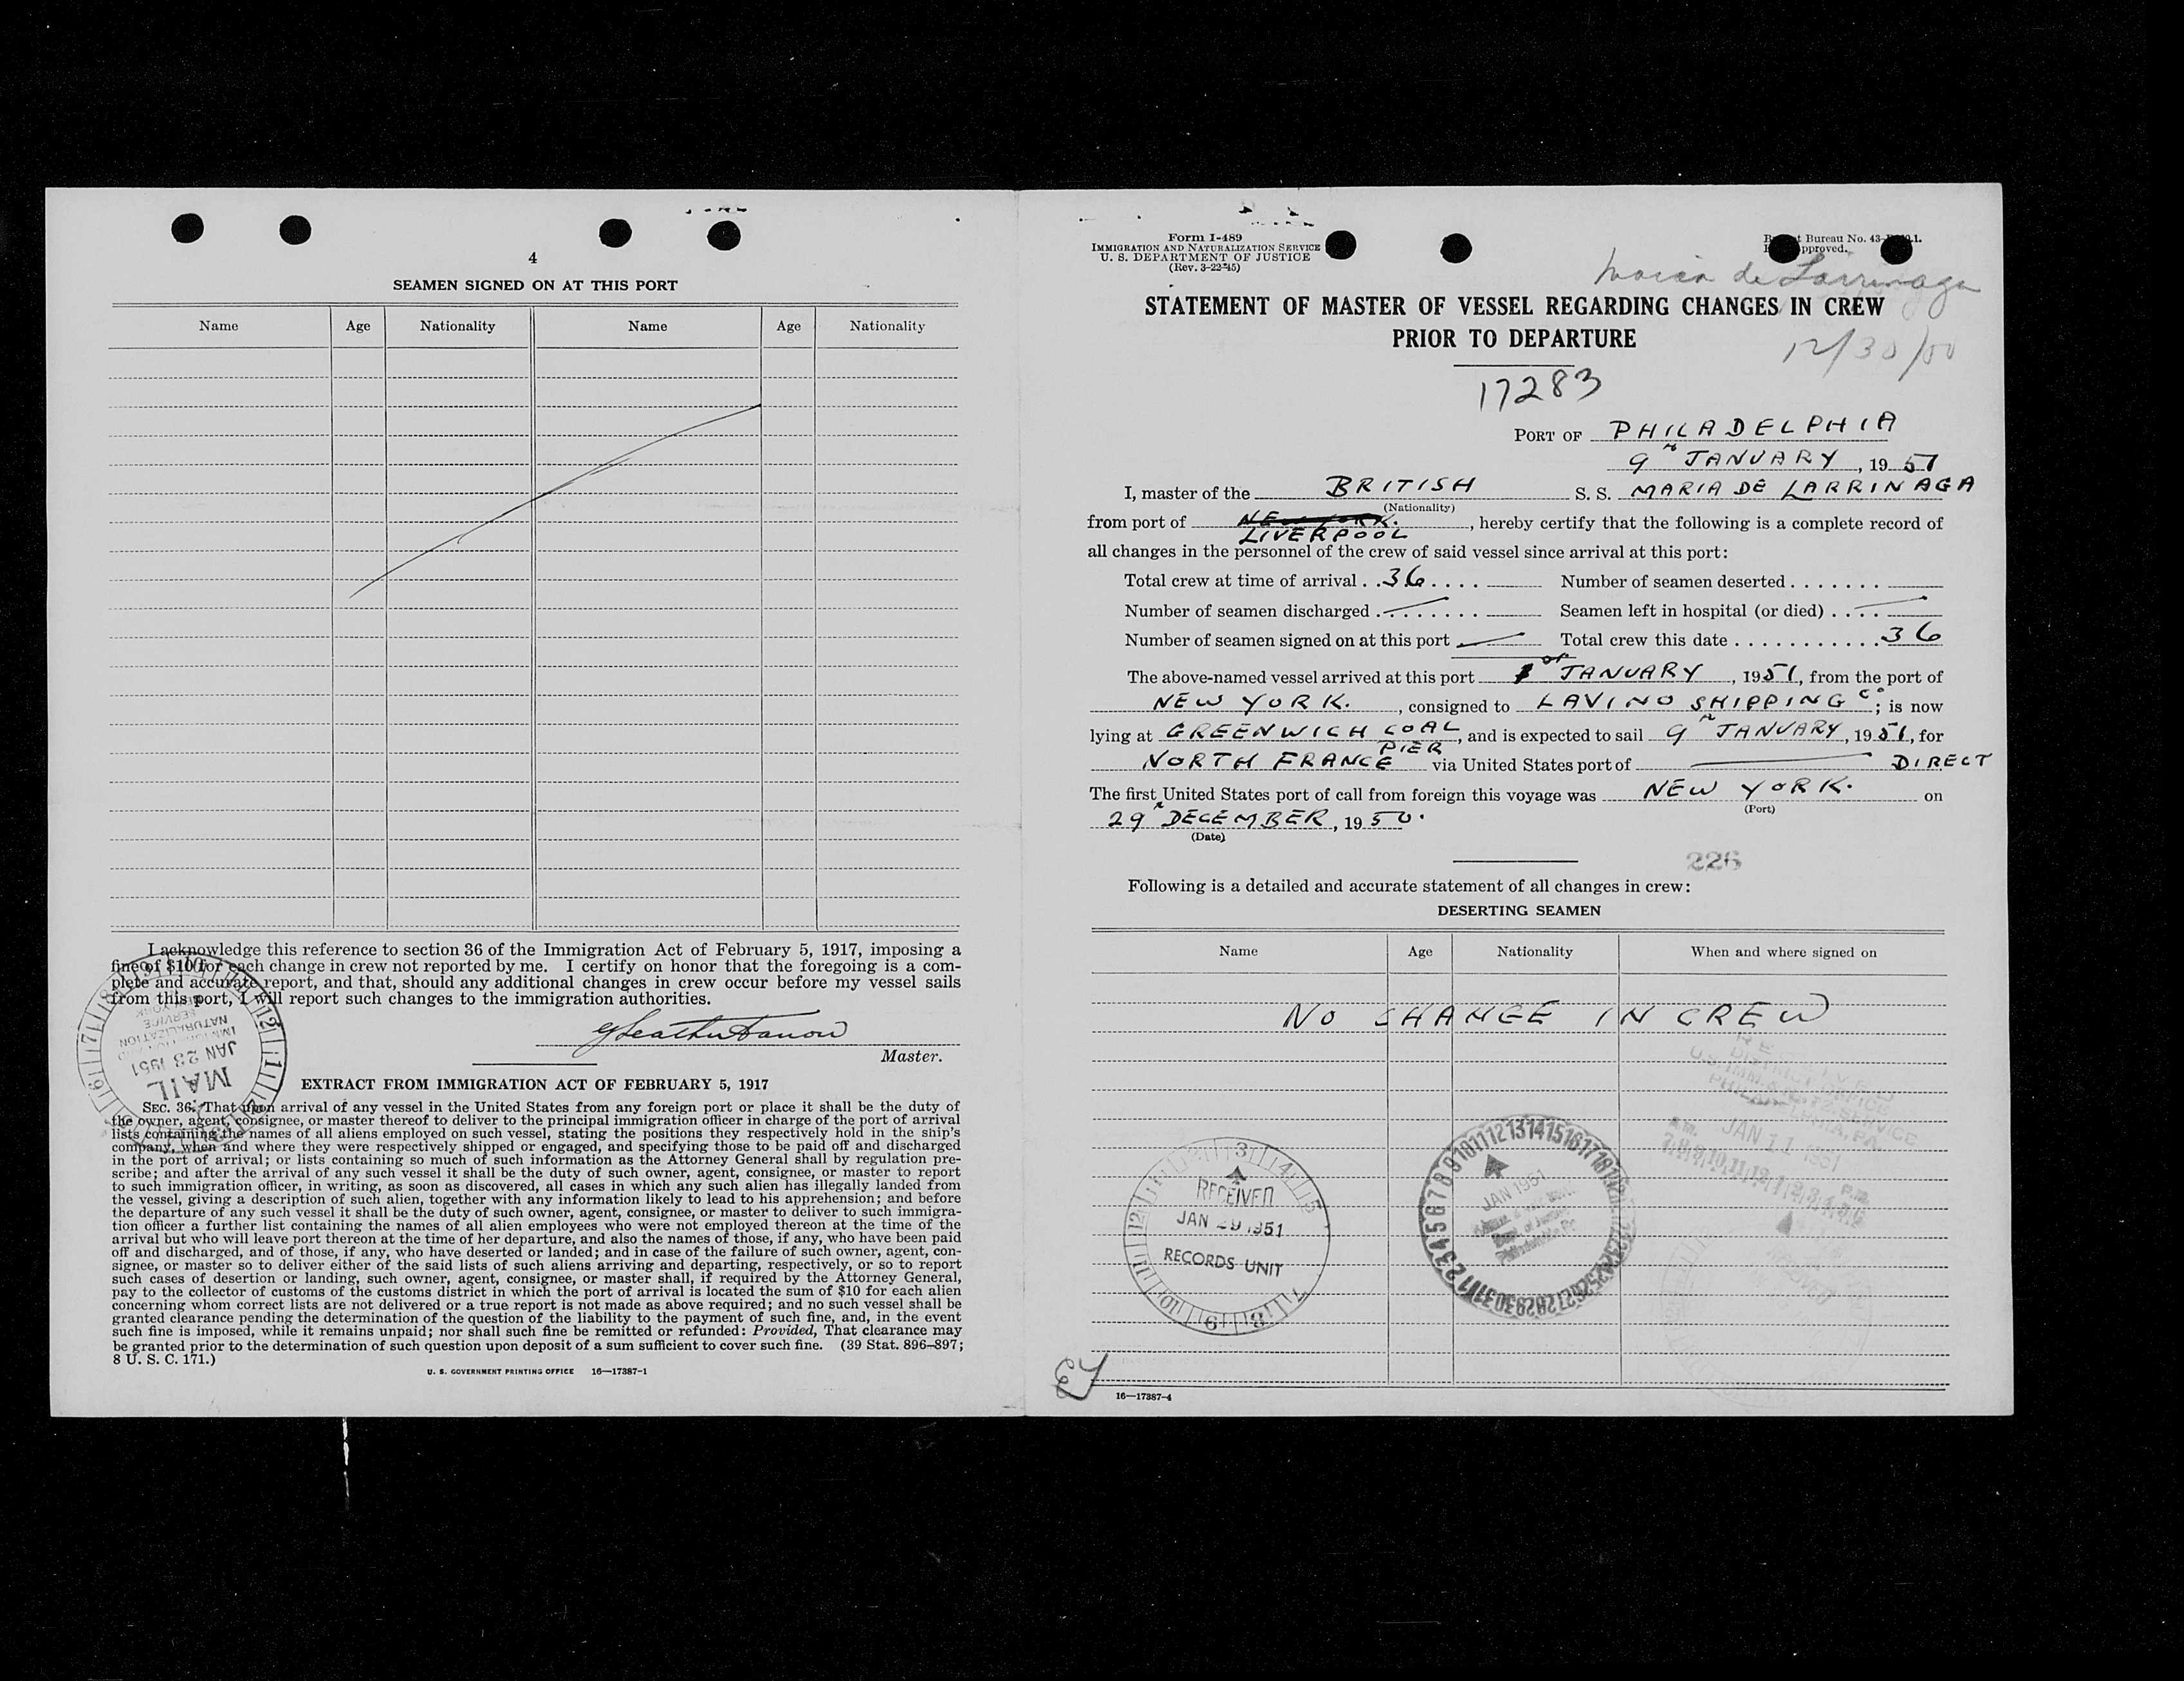 4
SEAMEN SIGNED ON AT THIS PORT
Name Age Nationality Name Age Nationality
I acknowledge this reference to section 36 of the Immigration Act of February 5, 1917, imposing a
fine of $10 for each change in crew not reported by me. I certify on honor that the foregoing is a com-
plete and accurate report, and that, should any additional changes in crew occur before my vessel sails
from this port, I will report such changes to the immigration authorities.
Master.
MAIL
JAN 23 1951
IMMIGRATION AND
NATURALIZATION
SERVICE
EXTRACT FROM IMMIGRATION ACT OF FEBRUARY 5, 1917
SEC. 36. That upon arrival of any vessel in the United States from any foreign port or place it shall be the duty of
the owner, agent, consignee, or master thereof to deliver to the principal immigration officer in charge of the port of arrival
lists containing the names of all aliens employed on such vessel, stating the positions they respectively hold in the ship's
company, when and where they were respectively shipped or engaged, and specifying those to be paid off and discharged
in the port of arrival; or lists containing so much of such information as the Attorney General shall by regulation pre-
scribe; and after the arrival of any such vessel it shall be the duty of such owner, agent, consignee, or master to report
to such immigration officer, in writing, as soon as discovered, all cases in which any such alien has illegally landed from
the vessel, giving a description of such alien, together with any information likely to lead to his apprehension; and before
the departure of any such vessel it shall be the duty of such owner, agent, consignee, or master to deliver to such immigra-
tion officer a further list containing the names of all alien employees who were not employed thereon at the time of the
arrival but who will leave port thereon at the time of her departure, and also the names of those, if any, who have been paid
off and discharged, and of those, if any, who have deserted or landed; and in case of the failure of such owner, agent, con-
signee, or master so to deliver either of the said lists of such aliens arriving and departing, respectively, or so to report
such cases of desertion or landing, such owner, agent, consignee, or master shall, if required by the Attorney General,
pay to the collector of customs of the customs district in which the port of arrival is located the sum of $10 for each alien
concerning whom correct lists are not delivered or a true report is not made as above required; and no such vessel shall be
granted clearance pending the determination of the question of the liability to the payment of such fine, and, in the event
such fine is imposed, while it remains unpaid; nor shall such fine be remitted or refunded: Provided, That clearance may
be granted prior to the determination of such question upon deposit of a sum sufficient to cover such fine. (39 Stat. 896–897;
8 U. S. C. 171.)
U. S. GOVERNMENT PRINTING OFFICE 16—17387-1
Form I-489
IMMIGRATION AND NATURALIZATION SERVICE
U. S. DEPARTMENT OF JUSTICE
(Rev. 3-22-45)
Bureau No. 43-
Maria de Larrinaga
STATEMENT OF MASTER OF VESSEL REGARDING CHANGES IN CREW
PRIOR TO DEPARTURE
12/30/50
17283
PORT OF PHILADELPHIA
9th JANUARY, 1951
I, master of the BRITISH S. S. MARIA DE LARRINAGA
(Nationality)
from port of NEW YORK. LIVERPOOL, hereby certify that the following is a complete record of
all changes in the personnel of the crew of said vessel since arrival at this port:
Total crew at time of arrival . . 36 . . . . Number of seamen deserted . . . . . . .
Number of seamen discharged . . . . . . . . Seamen left in hospital (or died) . . . .
Number of seamen signed on at this port Total crew this date . . . . . . . . . . . 36
The above-named vessel arrived at this port 1st JANUARY, 1951, from the port of
NEW YORK., consigned to LAVINO SHIPPING Co; is now
lying at GREENWICH COAL PIER, and is expected to sail 9th JANUARY, 1951, for
NORTH FRANCE via United States port of DIRECT
The first United States port of call from foreign this voyage was NEW YORK. on
(Port)
29th DECEMBER, 1950.
(Date)
226
Following is a detailed and accurate statement of all changes in crew:
DESERTING SEAMEN
Name Age Nationality When and where signed on
NO CHANGE IN CREW
RECEIVED
DISTRICT OFFICE
U.S. IMM. & NATZ. SERVICE
PHILADELPHIA, PA.
JAN 11 1951
RECEIVED
JAN 29 1951
RECORDS UNIT
JAN 1951
16—17387-4